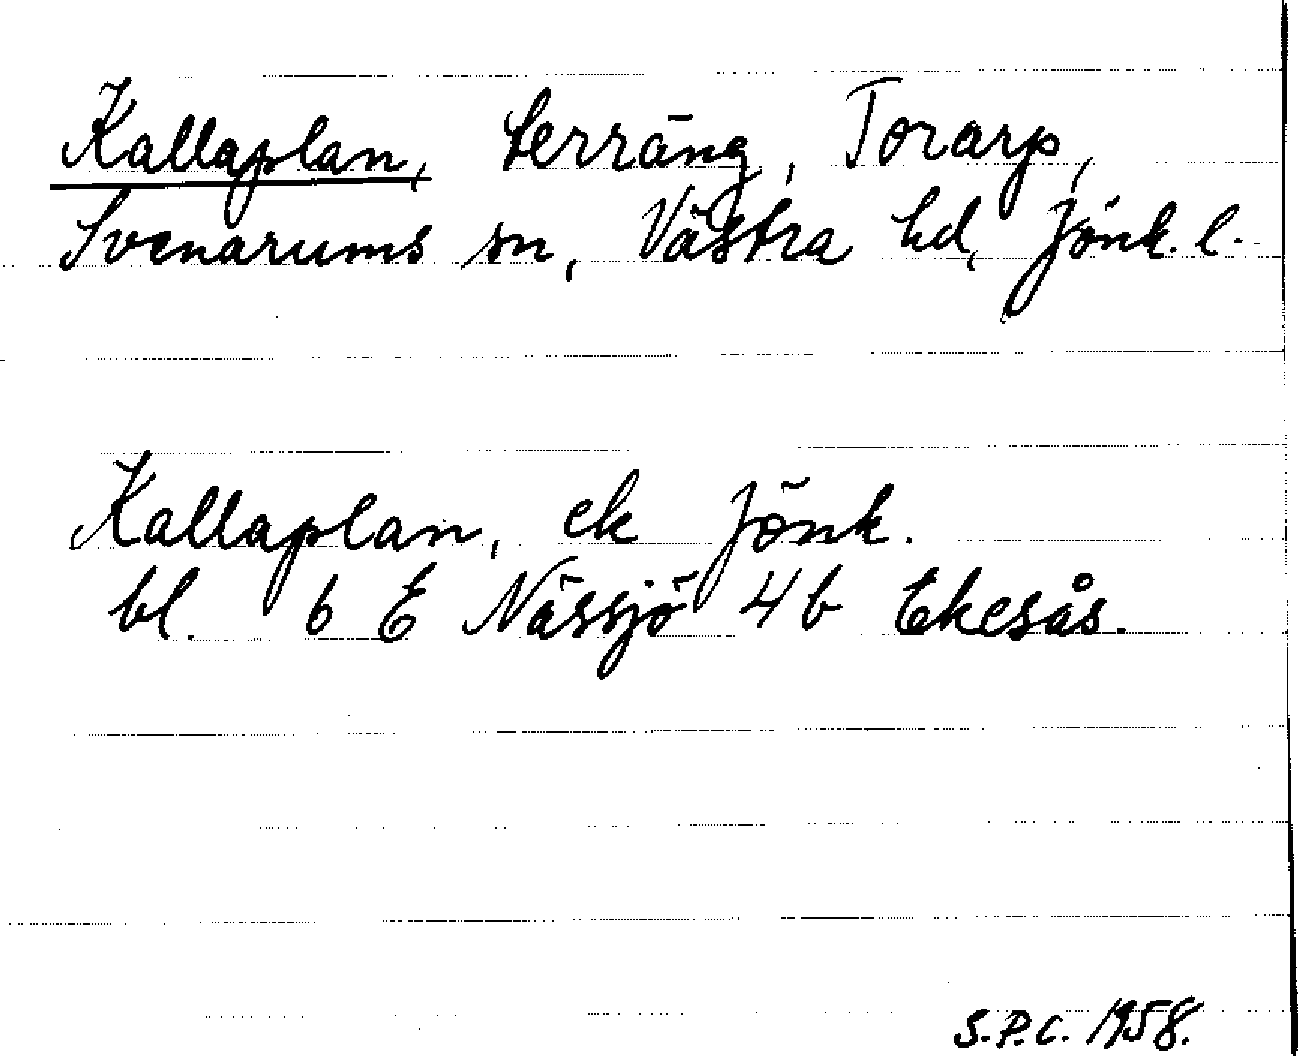 Kallaplan, terräng, Torarp,
Svenarums sn, Västra hd, Jönk. l.
Kallaplan, ek Jönk.
bl. 6 E Nässjö 4b Ekesås.
S.P.C. 1958.